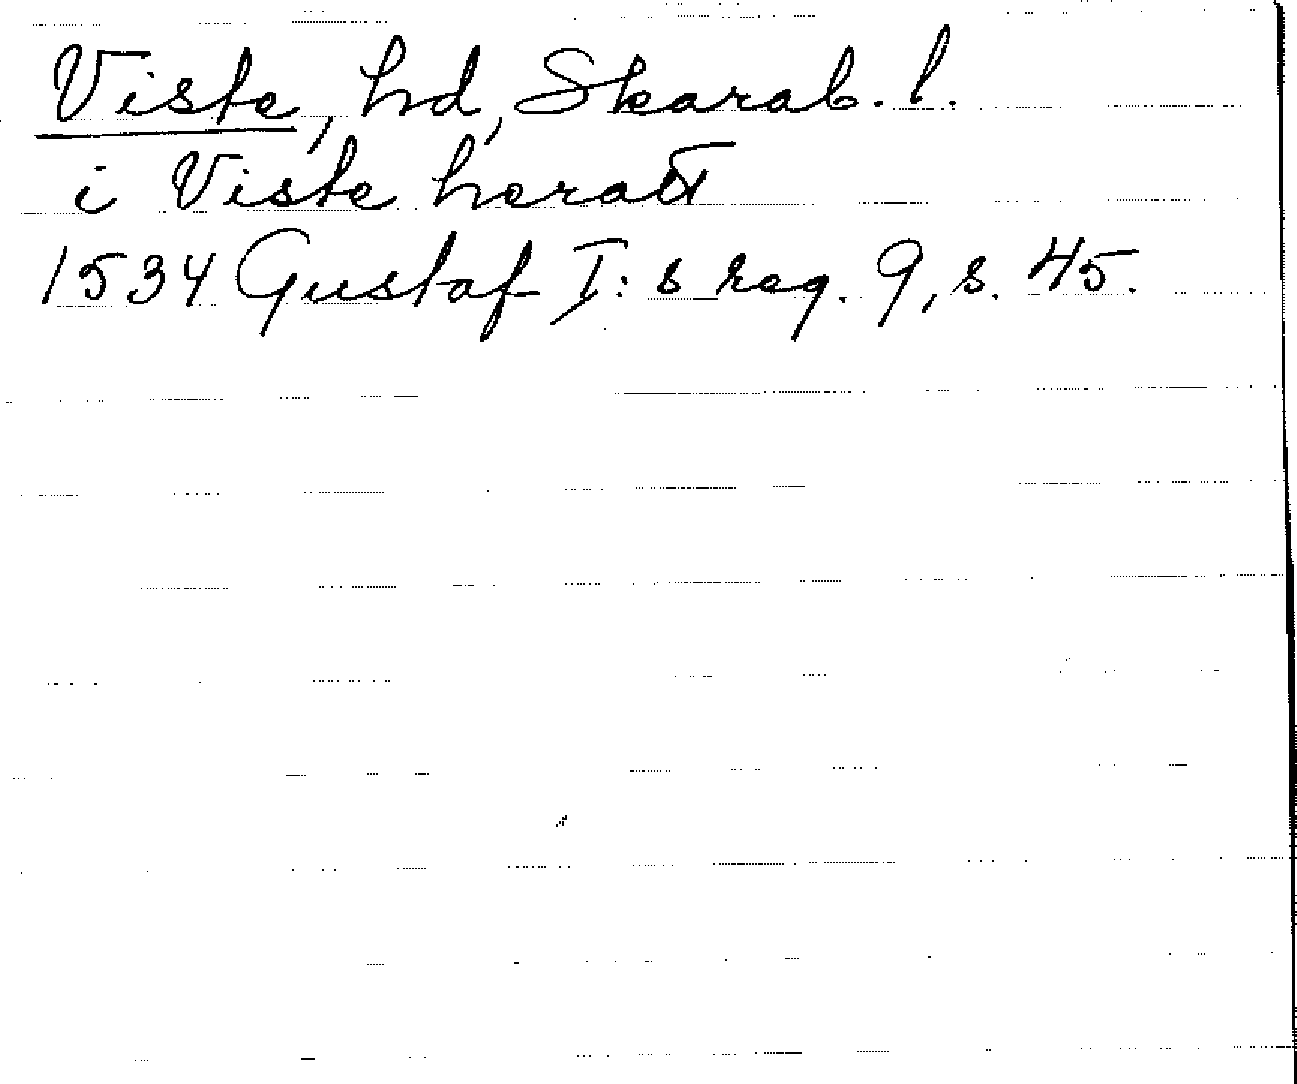 Viste, hd, Skarab. l.
i Viste heratt
1534 Gustaf I:s reg. 9, s. 45.